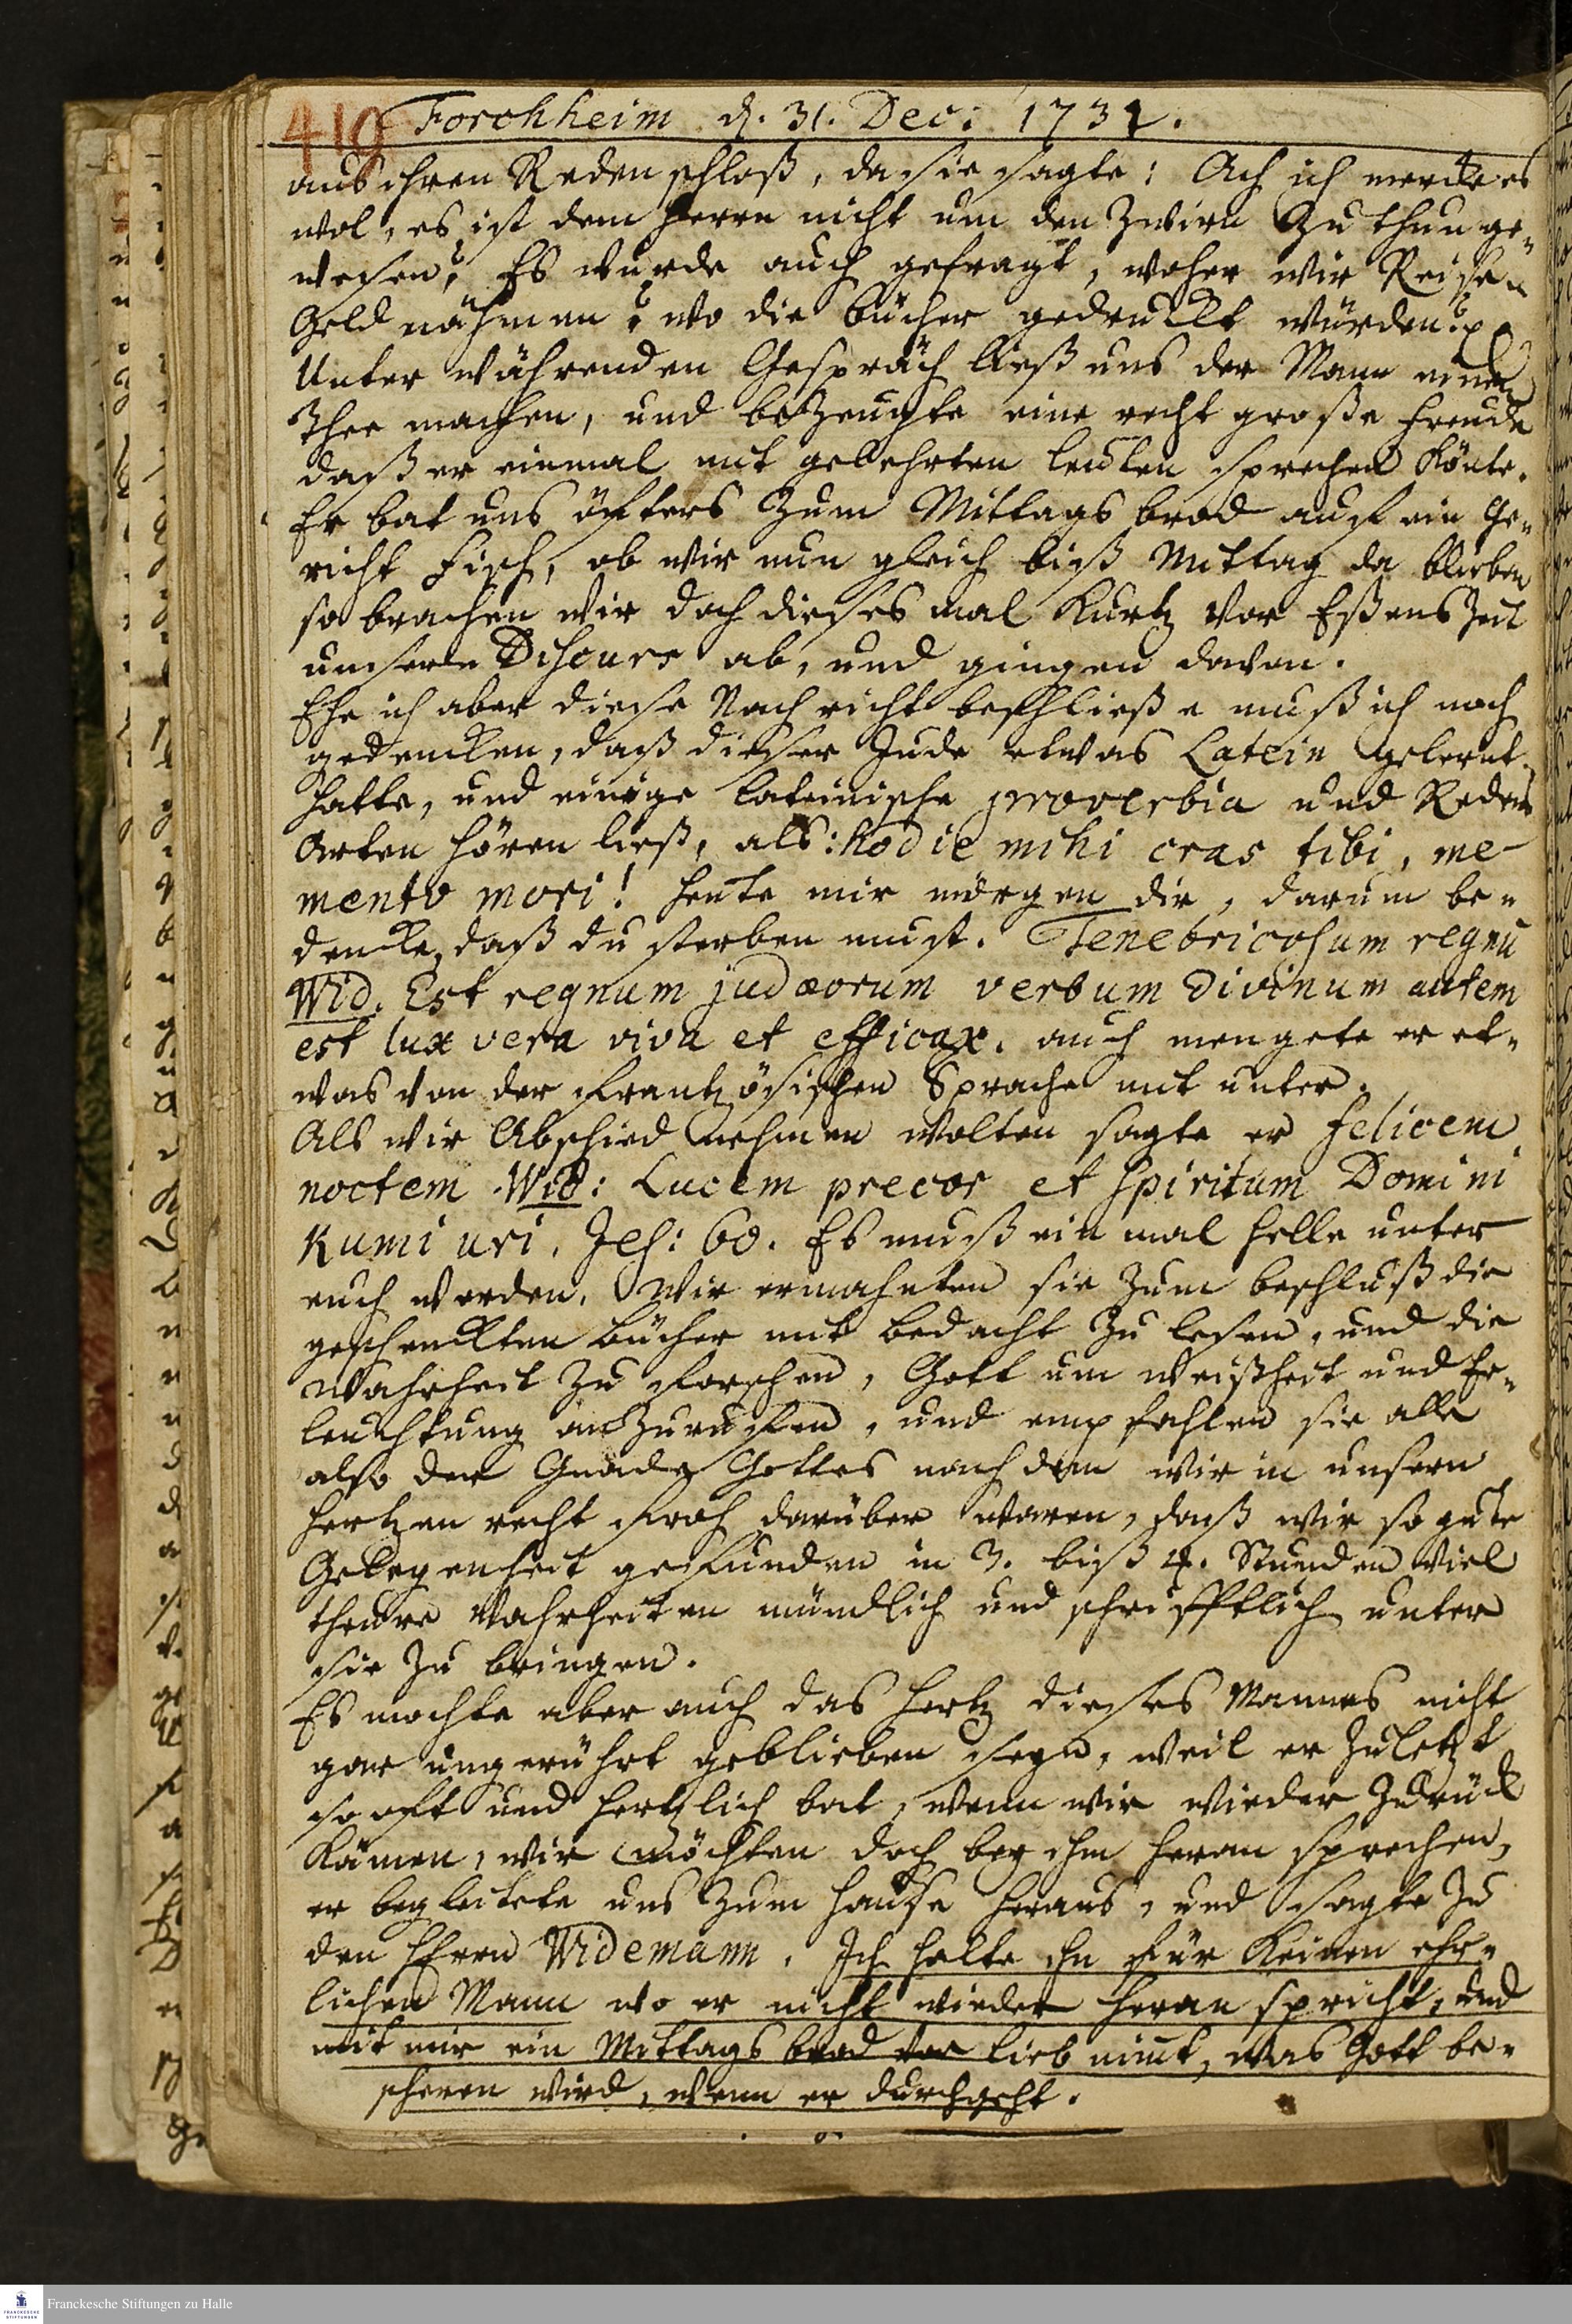 419 Forchheim d. 31. Dec: 1731.
aus ihren Reden schloß, da sie sagte: Ach ich mercke es
wol, es ist dem Herrn nicht um den Zwirn zu thun ge-
wesen; Es wurde auch gefragt, woher wir Reise-
Geld nähmen? wo die bücher gedruckt würden?
Unter währenden Gespräch ließ uns der Mann einen
Thee machen, und bezeugte eine recht große Freude
daß er einmal mit gelehrten leuten sprechen könte.
Er bat uns öfters zum Mittags brod auf ein Ge-
richt Fisch, ob wir nun gleich biß Mittag da blieben
so brachen wir doch dieses mal kurtz vor Eßens Zeit
unsern Discurs ab, und gingen davon.
Ehe ich aber diese Nachricht beschließe muß ich noch
gedencken, daß dieser Jude etwas Latein gelernt
hatte, und einige lateinische proverbia und Redens
Arten hören ließ, als: hodie mihi cras tibi, me-
mento mori! heute mir morgen dir, darum be-
dencke, daß du sterben must. Tenebricosum regnu
Wid. Est regnum judæorum verbum divinum autem
est lux vera viva et efficax. auch mengete er et-
was von der frantzösischen Sprache mit unter.
Als wir Abschied nehmen wolten sagte er felicem
noctem. Wid: Lucem precor et spiritum Domini
Kumi uri. Jes: 60. Es muß ein mal helle unter
euch werden. Wir ermahnten sie zum beschluß die
geschenckten bücher mit bedacht zu lesen, und die
Wahrheit zu forschen, Gott um Weißheit und Er-
leuchtung anzuruffen, und empfahlen sie alle
also der Gnade Gottes nach dem wir in unsern
Hertzen recht froh darüber waren, daß wir so gute
Gelegenheit gefunden in 3. biß 4. Stunden viel
theure Wahrheiten mündlich und schrifftlich unter
sie zu bringen.
Es mochte aber auch das Hertz dieses Mannes nicht
gar ungerührt geblieben seyn, weil er zuletzt
so oft und hertzlich bat, wenn wir wieder zurück
kämen, wir möchten doch bey ihm heran sprechen,
er begleitete uns zum Hause heraus, und sagte zu
den Herrn Widemann. Ich halte ihn für keinen ehr-
lichen Mann wo er nicht wieder heran spricht, und
mit mir ein Mittags brod vor lieb nimt, was Gott be-
scheren wird, wenn er durchgeht.
Franckesche Stiftungen zu Halle